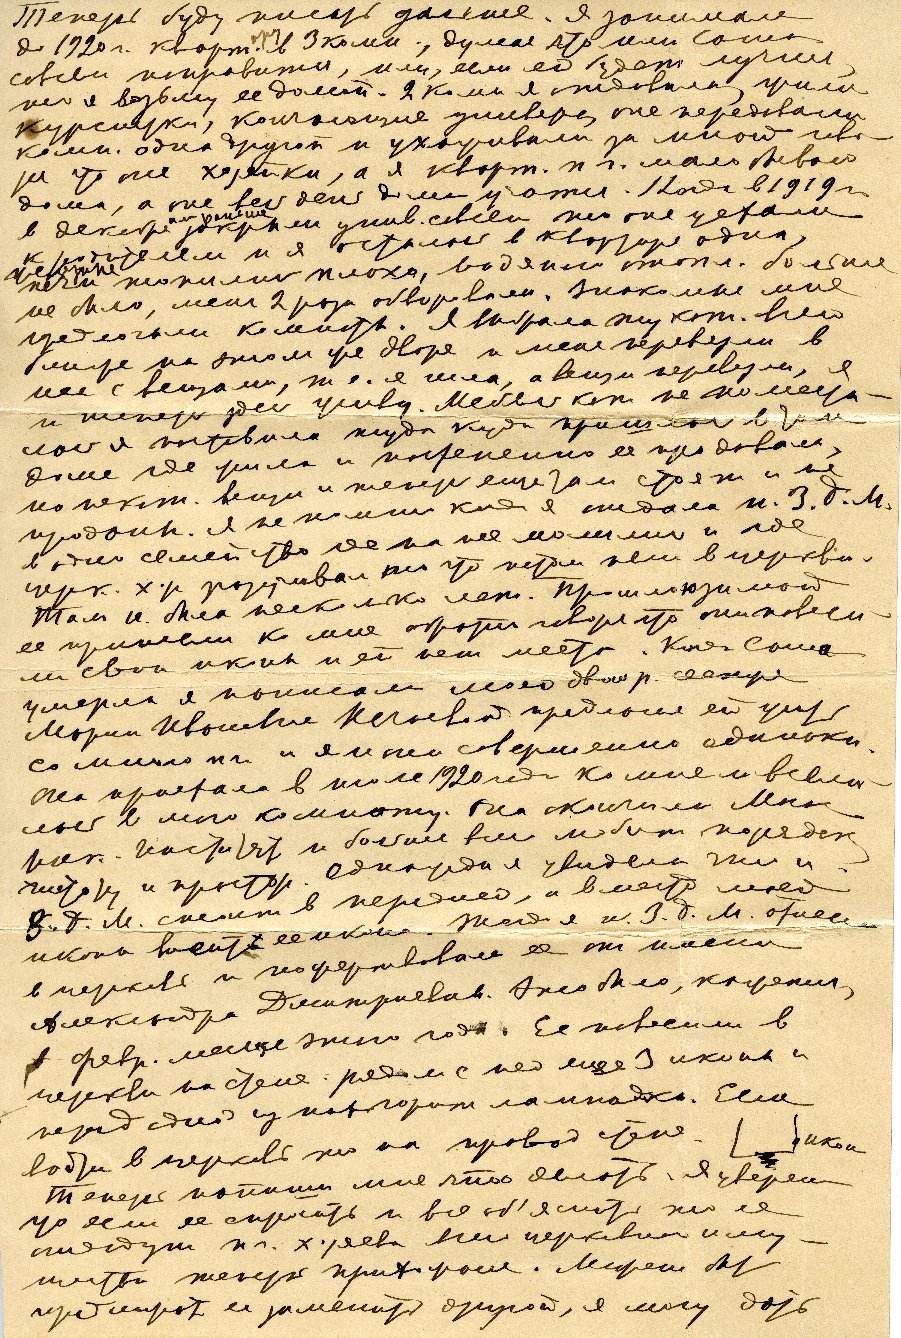 Теперь буду писать дальше. Я занимала
до 1920 г. кварт. в 3 комн., думая что или Саша
совсем поправится, или, если ей будет лучше,
то я возьму ее домой. 2 комн. я отдавала, жили
курсистки, кончающие универ., оне передавали
комн. одна другой и ухаживали за мной
за что оне хозяйки, а я кварт. т. к. мало бывала
дома, а оне весь день дома. Когда в 1919 г.
в декабре закрыли унив. совсем то оне уехали
к родителям и я осталась в квартире одна,
топили плохо, водяного отопл. больше
не было, меня 2 раза обворовали. Знакомые мне
предлагали комнаты. Я выбрала ту кот. была
ближе на этом же дворе и меня перевезли в
нее с вещами, т. е. я шла, а вещи перевезли, я
и теперь здесь живу. Мебель кот. не помеща-
лась я поставила туда куда пришлось в том
доме где жила и постепенно ее продавала,
но некот. вещи и теперь еще там стоят и не
проданы. Я не помню когда я отдала и. З. Б. М.
в одно семейство где на нее молились и где
церк. хор разучивал то что потом пели в церкви.
Там и. была несколько лет. Прошлой зимой
ее принесли ко мне обратно говоря что они повеси-
ли свои иконы и ей нет места. Когда Саша
умерла я написала моей двоюр. сестре
Марии Ивановне предложив ей жить
со мной т. к. и я и она совершенно одиноки.
Она приехала в июле 1920 года ко мне и всели-
лась в мою комнату. Она окончила
институт и больше всего любит порядок
чистоту и простор. Однажды я увидела что и.
З. Б. М. снята в передней, а вместо моей
иконы висит ее икона. Тогда я и. З. Б. М. отнесла
в церковь и пожертвовала ее от имени
Александра Дмитриевича. Это было, кажется,
в февр. месяце этого года. Ее повесили в
церкви на стене. рядом с ней еще 3 иконы и
перед одной из них горит лампадка. Если
войти в церковь то на правой стене. икон
Теперь напиши мне что делать. Я уверена
что если ее спросить и все объяснить то ее
отдадут т. к. хозяева всего церковного иму-
щества теперь прихожане. Может быть
придется ее заменить другой, я могу дать